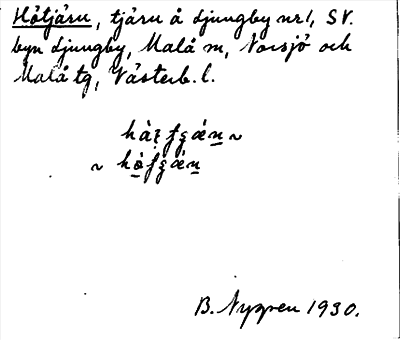 Hötjärn, tjärn å Ljungby nr 1, SV.
byn Ljungby, Malå sn, Norsjö och
Malå tg, Västerb. l.
~
~
B. Nygren 1930.